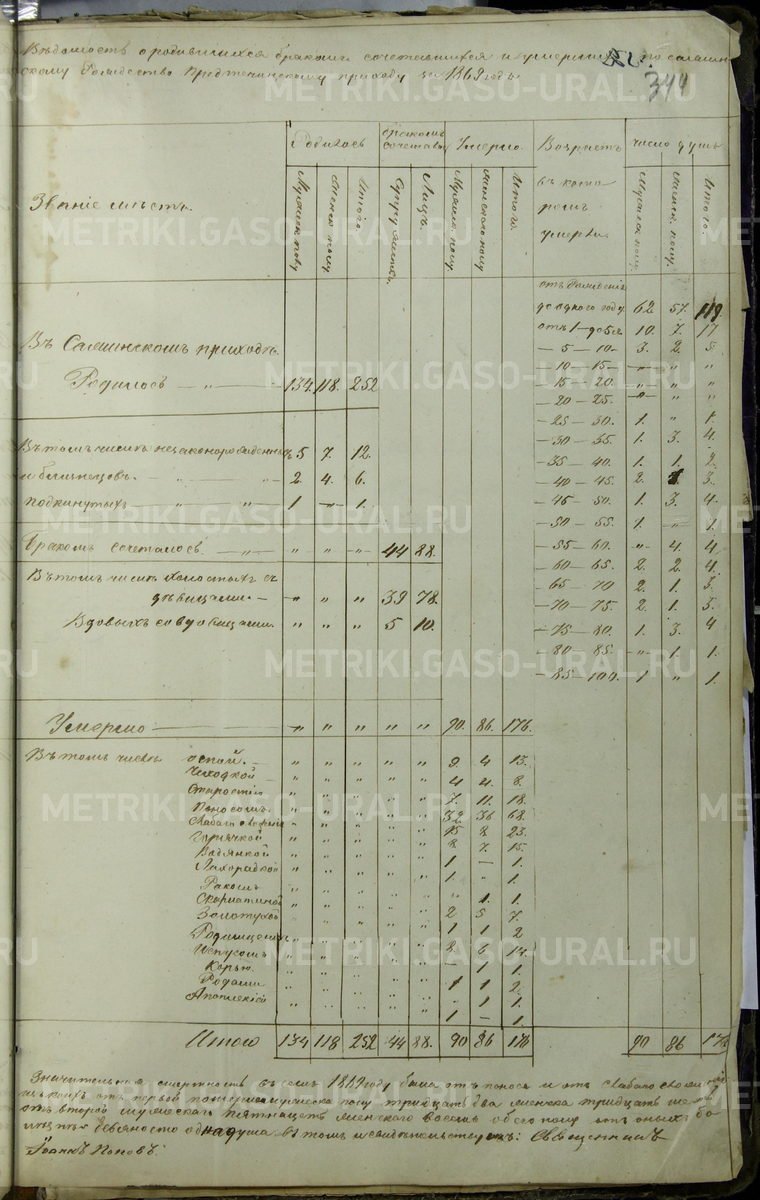 Вѣдомость о родившихся бракомъ сочетавшихся и умершихъ по салдин-
скому Рождество Предтеченскому приходу за 1869 годъ.
344
Званіе мѣстъ.
Родилось
бракомъ сочетавш.
Умерло.
Возрастъ въ кото ромъ умерли.
число душъ
Мужеск. полу
Женск. полу
Итого.
Супружествъ.
Лицъ.
Мужеск. полу
Женскаго полу
Итого.
Мужеск. полу.
Женск. полу.
Итого.
Въ Салдинскомъ приходѣ.
Родилось — „ — 134. 118. 252
Въ томъ числѣ незаконорожденныхъ 5 7. 12.
и близнецовъ. — „ — 2. 4. 6.
подкинутыхъ — „ — 1 — 1.
Бракомъ сочеталось — „ — „ „ „ 44 88.
Въ томъ числѣ холостыхъ съ
дѣвицами. — „ „ „ 39 78.
Вдовыхъ со вдовицами. „ „ „ 5 10.
отъ рожденія
до одного году 62. 57. 119.
отъ 1 — до 5 10. 7. 17
— 5 — 10 — 3. 2. 5
— 10 — 15 — „ „ „
— 15 — 20. „ „ „
— 20 — 25. „ „ „
— 25 — 30. 1. „ 1.
— 30 — 35. 1. 3. 4.
— 35 — 40. 1. 1. 2.
— 40 — 45. 2. 1 3.
— 45 — 50. 1. 3. 4.
— 50 — 55. 1. „ 1.
— 55 — 60. „ 4. 4.
— 60 — 65. 2. 2. 4.
— 65 — 70 2. 1. 3.
— 70 — 75. 2. 1. 3.
— 75 — 80. 1. 3. 4
— 80 — 85. „ 1. 1.
— 85 — 100. 1 „ 1.
Умерло — „ „ „ „ „ 90. 86. 176.
Въ томъ числѣ оспой. — „ „ „ „ „ 9 4 13.
Чихоткой „ „ „ „ „ 4 4. 8.
Старостію „ „ „ „ „ 7. 11. 18.
Поносомъ. „ „ „ „ „ 32 36 68.
Слабаго сложенія „ „ „ „ „ 15 8 23.
Горячкой „ „ „ „ „ 8 7. 15.
Водянкой „ „ „ „ „ 1 — 1.
Лихорадкой „ „ „ „ „ 1. „ 1.
Ракомъ „ „ „ „ „ „ 1. 1.
Скорлатиной „ „ „ „ „ 2 5 7.
Золотухой „ „ „ „ „ 1 1 2
Родимцемъ „ „ „ „ „ 8. 6 14.
Испугомъ „ „ „ „ „ — 1 1.
Корью. „ „ „ „ „ 1 1 2.
Родами „ „ „ „ „ „ 1 1.
Апоплексіей „ „ „ „ „ 1 — 1.
Итого 134 118 252 44 88. 90 86 176 90 86 176
Значительная смертность въ семъ 1869 году была отъ поноса и отъ слабаго сложенія
отъ первой мужеска полу тридцать два женска тридцать шесть
отъ второй мужескаго пятнацеть женскаго восемь обоего полу отъ оныхъ бо
лѣзней девяносто одна душа въ томъ и свидѣтельствуемъ: Священникъ
Іоаннъ Поповъ.
METRIKI.GASO-URAL.RU